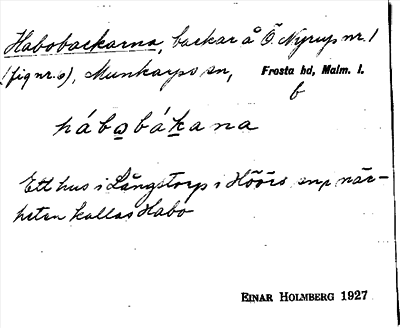 Habobackarna, backar å Ö. Nyrup nr. 1
(fig nr. 0), Munkarps sn, Frosta hd, Malm. l.
b
hábo̲bák̲ana
Ett hus i Långstorp i Höörs sn, i när-
heten kallas Habo
EINAR HOLMBERG 1927